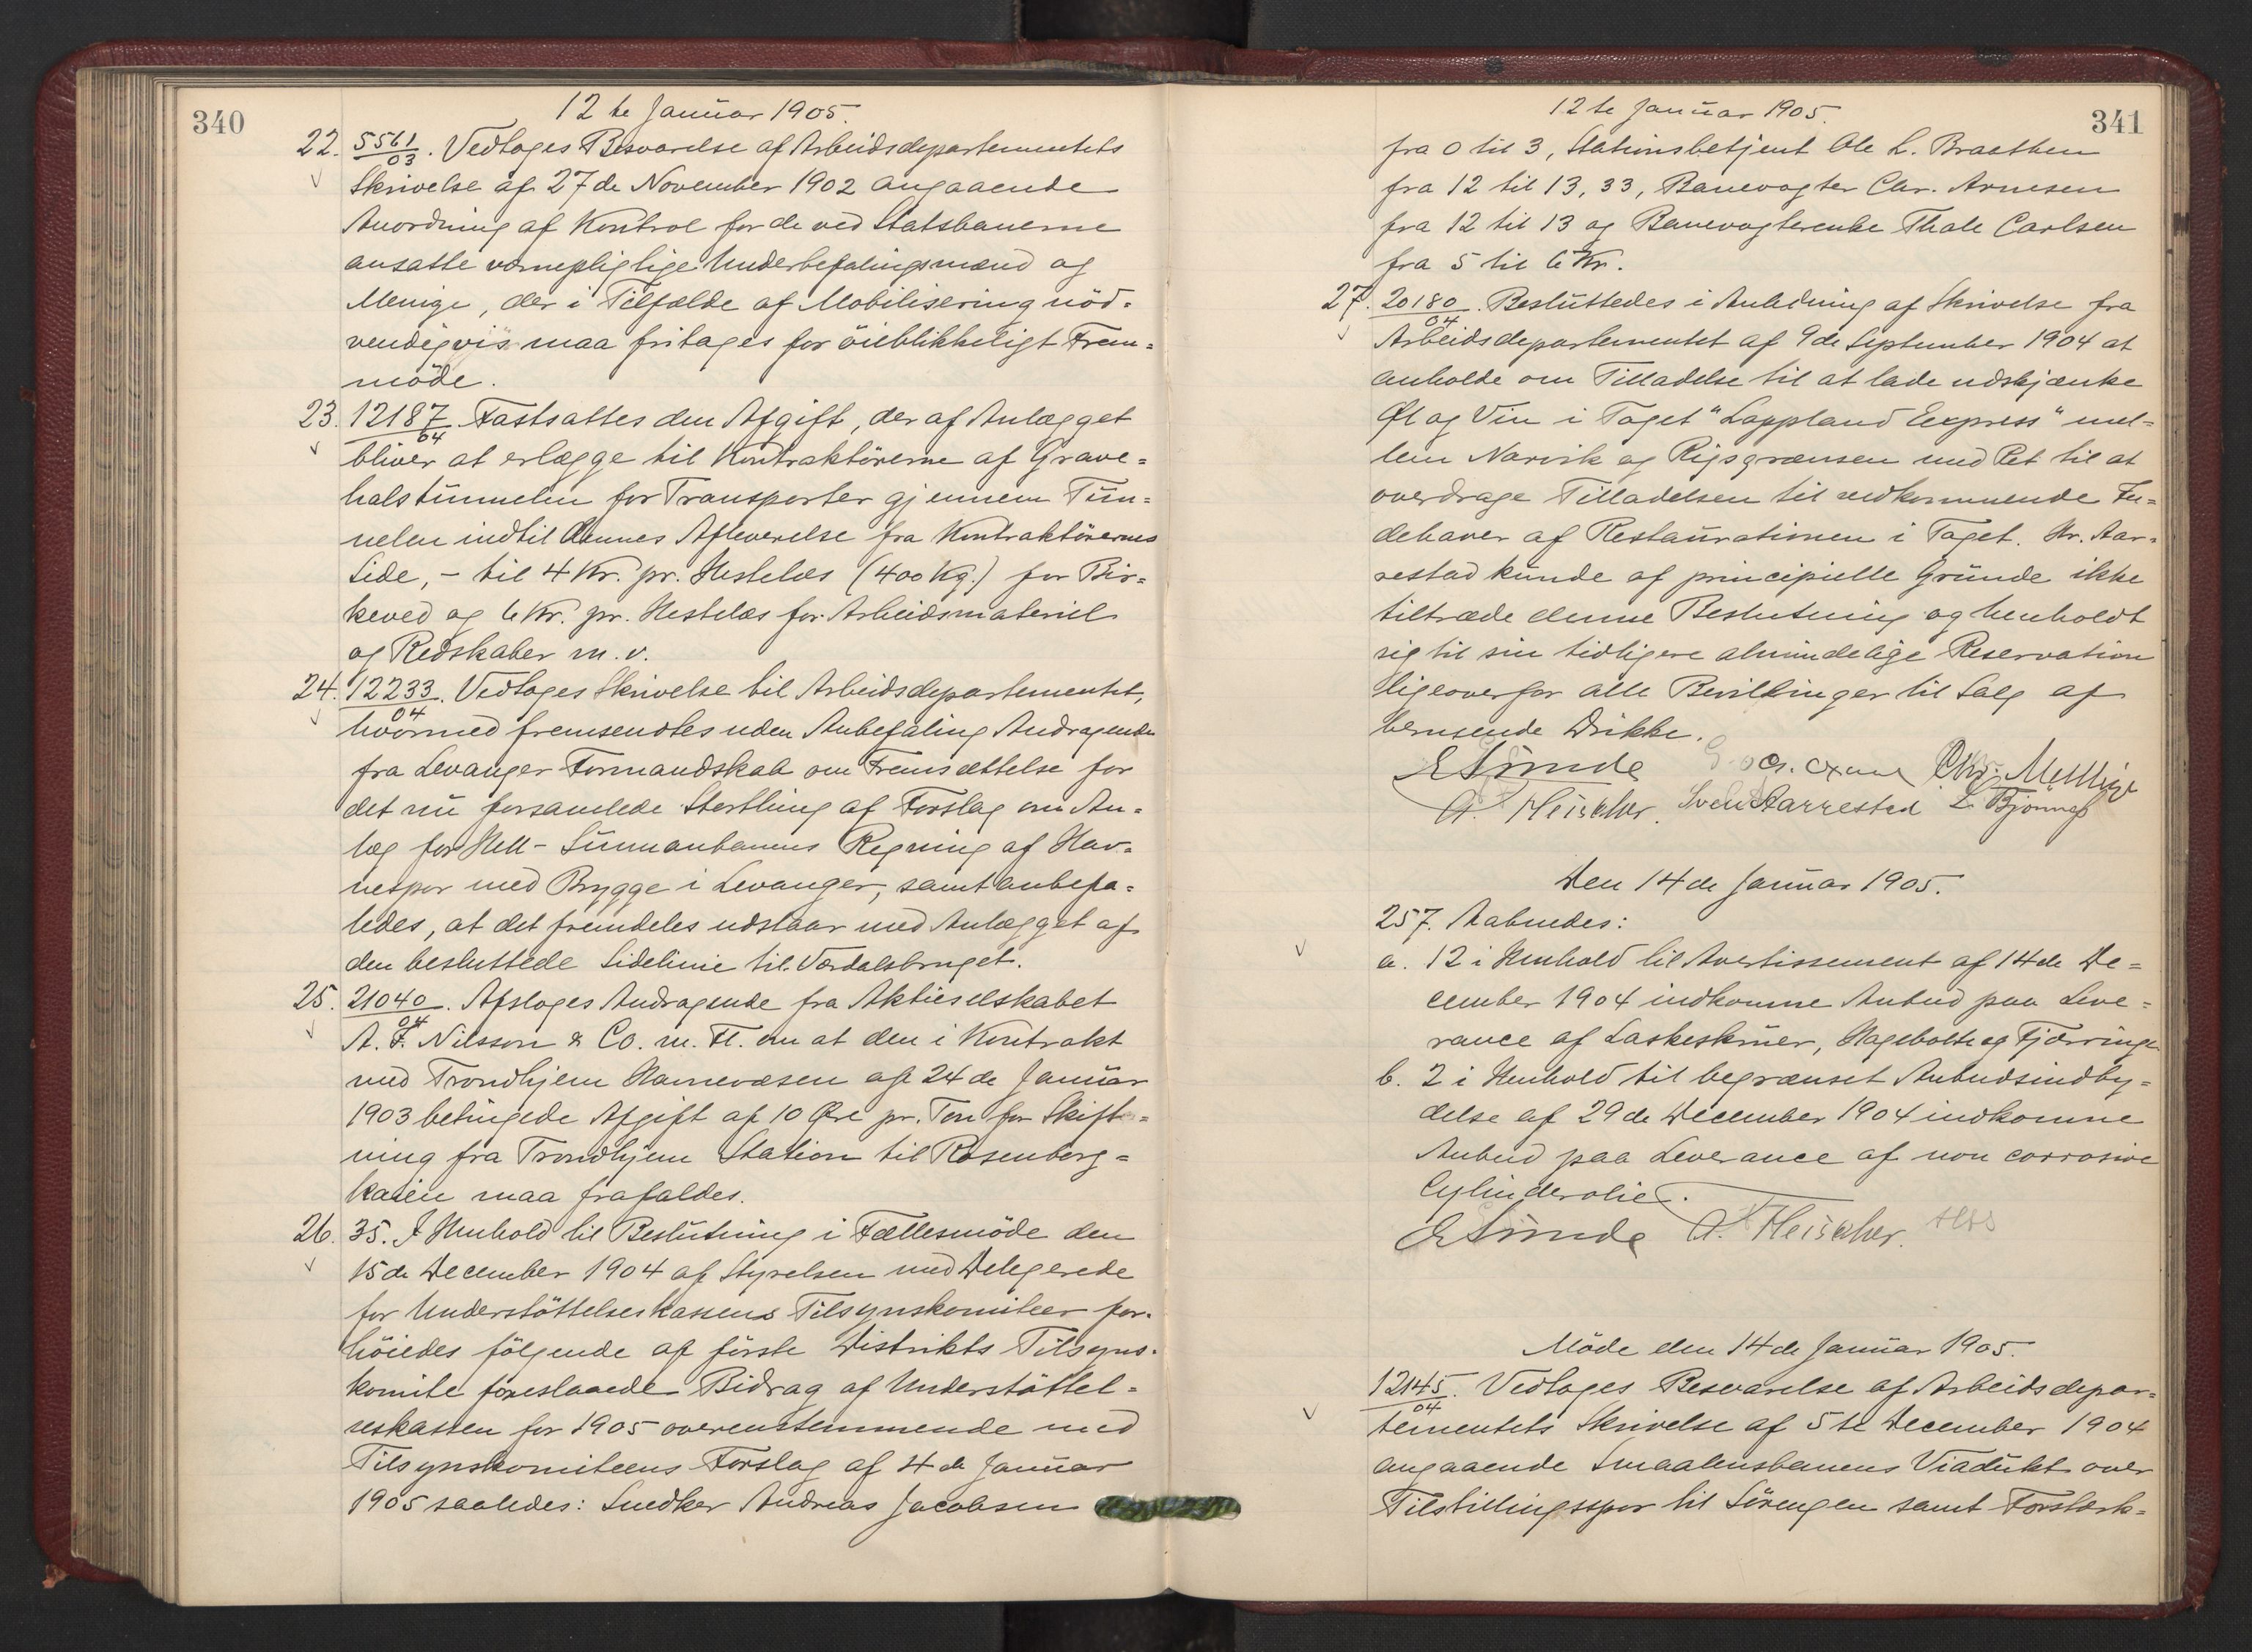 340
12te Januar 1905.
22. 5561/03. Vedtoges Besvarelse af Arbeidsdepartementets
Skrivelse af 27de November 1902 angaaende
Anordning af Kontrol for de ved Statsbanerne
ansatte værnepligtige Underbefalingsmænd og
Menige, der i Tilfælde af Mobilisering nöd-
vendigvis maa fritages for öieblikkeligt Frem-
möde.
23. 12187/04. Fastsattes den Afgift, der af Anlægget
bliver at erlægge til Kontraktörerne af Grave-
halstunnelen for Transporter gjennem Tun-
nelen indtil dennes Afleverelse fra Kontraktörernes
Side, - til 4 Kr. pr. Hestelæs (400 Kg.) for Bir-
keved og 6 Kr. pr. Hestelæs for Arbeidsmateriel
og Redskaber m. v.
24. 12233/04. Vedtoges Skrivelse til Arbeidsdepartementet,
hvormed fremsendtes uden Anbefaling Andragende
fra Levanger Formandskab om Fremsættelse for
det nu forsamlede Storthing af Forslag om An-
læg for Hell-Sunnanbanens Regning af Hav-
nespor med Brygge i Levanger, samt anbefa-
ledes, at det fremdeles udstaar med Anlægget af
den besluttede Sidelinie til Værdalsbruget.
25. 21040/04. Afsloges Andragende fra Aktieselskabet
A. F. Nilsson & Co. m. Fl. om at den i Kontrakt
med Trondhjem Havnevæsen af 24de Januar
1903 betingede Afgift af 10 Øre pr. Ton for Skift-
ning fra Trondhjem Station til Rosenborg-
kaien maa frafaldes.
26. 35. I Henhold til Beslutning i Fællesmöde den
15de December 1904 af Styrelsen med Delegerede
for Understöttelseskassens Tilsynskomiteer for-
höiedes fölgende af förste Distrikts Tilsyns-
komite foreslaaede Bidrag af Understöttel-
seskassen for 1905 overenstemmende med
Tilsynskomiteens Forslag af 4de Januar
1905 saaledes: Snedker Andreas Jacobsen
341
12te Januar 1905.
fra 0 til 3, Stationsbetjent Ole L. Braathen
fra 12 til 13,33, Banevogter Chr. Arnesen
fra 12 til 13 og Banevogterenke Thale Carlsen
fra 5 til 6 Kr.
27. 20180/04. Besluttedes i Anledning af Skrivelse fra
Arbeidsdepartementet af 9de September 1904 at
anholde om Tilladelse til at lade udskjænke
Øl og Vin i Toget "Lappland Express" mel-
lem Narvik og Rigsgrænsen med Ret til at
overdrage Tilladelsen til vedkommende In-
dehaver af Restaurationen i Toget. Hr. Aar-
restad kunde af principielle Grunde ikke
tiltræde denne Beslutning og henholdt
sig til sin tidligere almindelige Reservation
ligeoverfor alle Bevillinger til Salg af
berusende Drikke.
E Sunde Chr.
A. Fleischer. Sven Aarrestad L. Bjønnes
Den 14de Januar 1905.
257. Aabnedes:
a. 12 i Henhold til Avertissement af 14de De-
cember 1904 indkomne Anbud paa Leve-
rance af Laskeskruer, Hagebolte og Fjærringe
b. 2 i Henhold til begrænset Anbudsindby-
delse af 29de December 1904 indkomne
Anbud paa Leverance af non corrosive
Cylinderolie.
E Sunde A. Fleischer.
Möde den 14de Januar 1905.
12145/04. Vedtoges Besvarelse af Arbeidsdepar-
tementets Skrivelse af 5te December 1904
angaaende Smaalensbanens Viadukt over
Tilstillingsspor til Sörengen samt Forstærk-